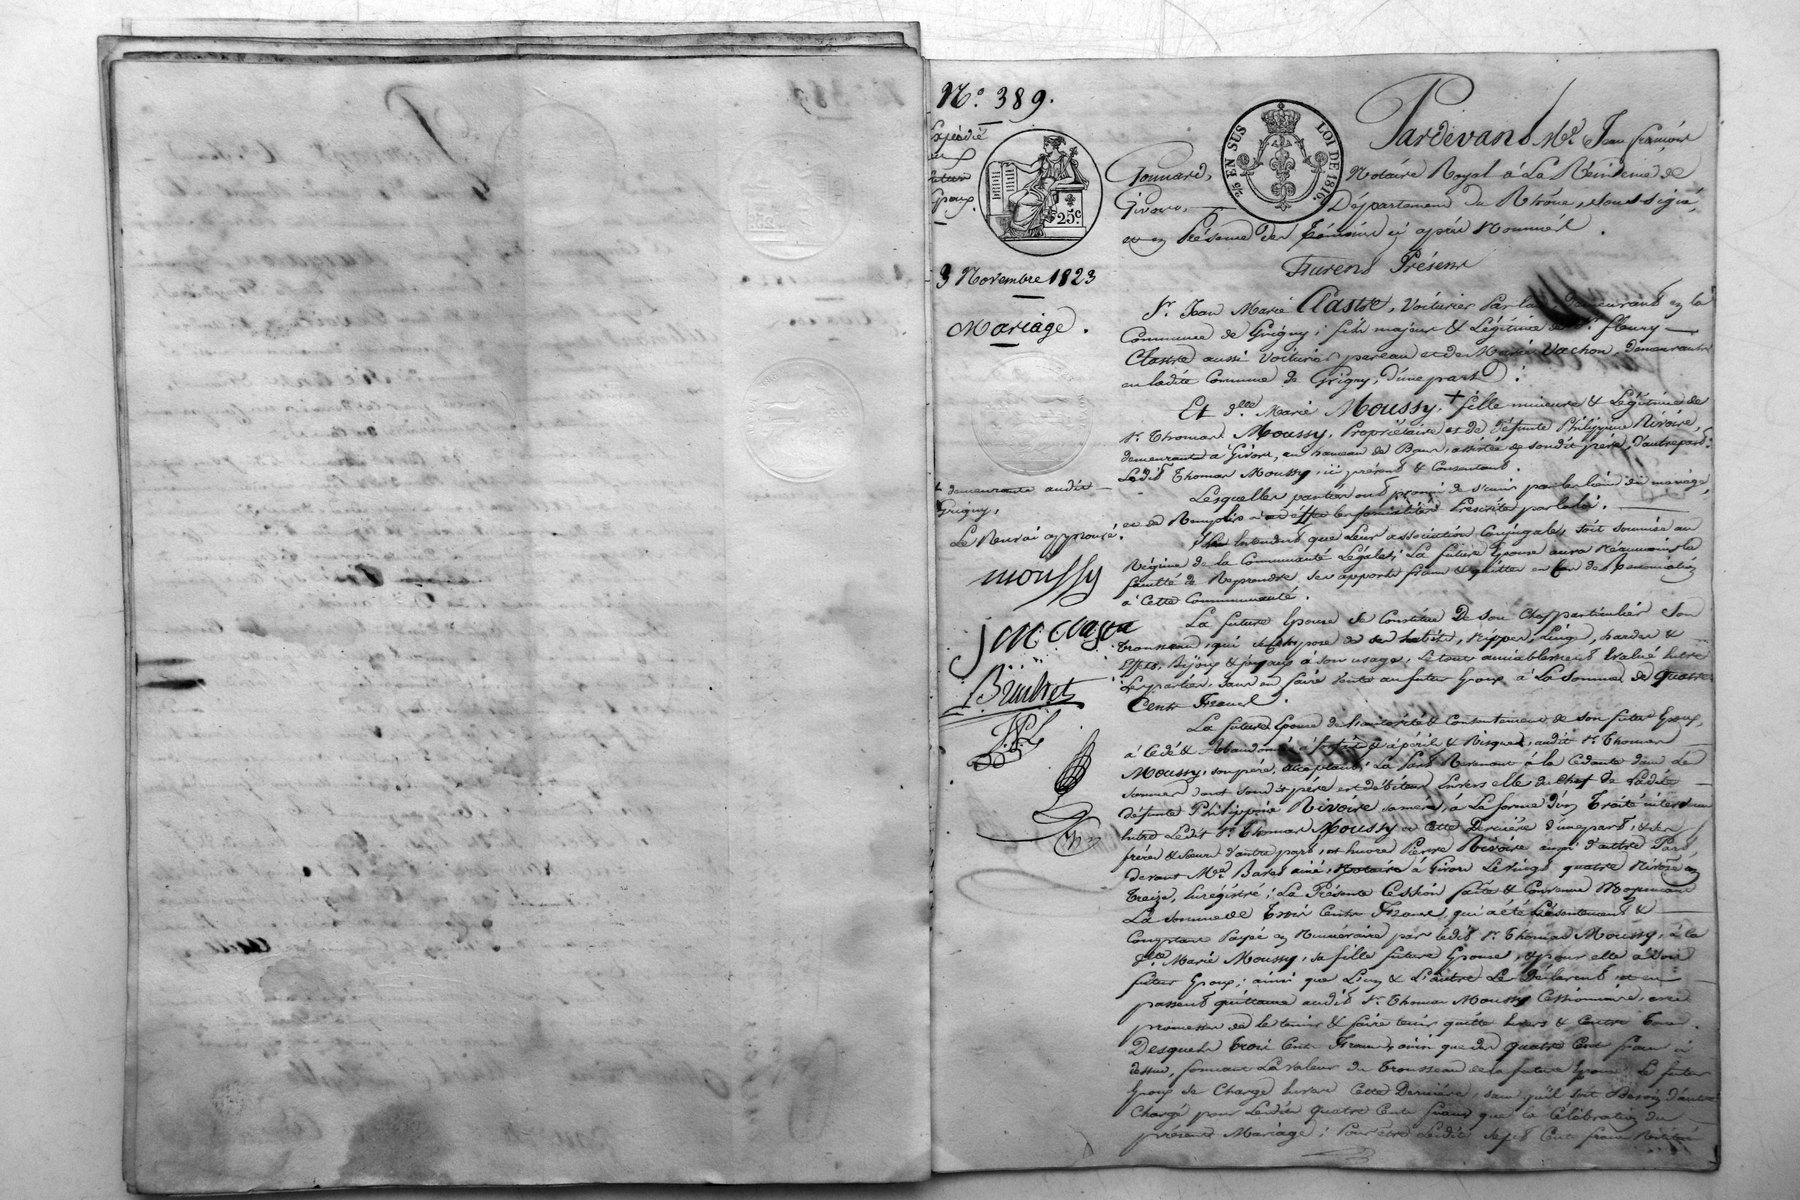 N.o 389.
Expédié
au
futur
Epoux.
25.c
3 Novembre 1823
Mariage.
+ demeurante audit
Grigny,
Le Renvoi approuvé.
moussy
J M Clastre
EN SUS
LOI DE 1816.
Pardevant M.e Jean françois
Gounard, Notaire Royal à La Résidence de
Givors, Département du Rhône, soussigné,
et en Présence des témoins ci après Nommés.
Furent Présens
S.r Jean Marie Clastre, Voiturier par Demeurant en la
Commune de Grigny, fils majeur & Légitime de S.r fleury
Clastre aussi Voiturier par eau et de Marie Vachon, demeurants
en ladite Commune de Grigny, d'une part.
Et d.lle Marie Moussy,+ fille mineure & Légitime de
S.r Thomas Moussy, Propriétaire et de défunte Philippine Rivoire,
demeurante à Givors, au hameau de Bans, assistée de son dit père, d'autre part.
Ledit Thomas Moussy, ici présent & Consentant.
Lesquelles parties ont promis de s'unir par les liens du mariage,
et de Remplir à cet effet les formalités Prescrites par la loi.
Entendent que leur association Conjugale, soit soumise au
Régime de la Communauté Légale; La future Epouse aura Néanmoins la
faculté de Reprendre, ses apports francs & quittes en cas de Renonciation
à Cette Communauté.
La future Epouse se Constitue De son Chef particulier Son
trousseau, qui se Compose de ses habits, Nippes, Linge, hardes &
Effets, Bijoux & joyaux à son usage, Le tout amiablement Evalué Entre
Les parties, sans en faire Vente au futur Epoux à La Somme de Quatre
Cents Francs.
La future Epouse de l'autorité & Consentement de son futur Epoux,
à Cédé & Abandonné à forfait & à péril & Risques, audit S.r Thomas
Moussy, son père, acceptant, La part Revenant à la Cédante dans Les
sommes dont son dit père est débiteur Envers elle du Chef de Ladite
défunte Philippine Rivoire sa mère, à La forme d'un Traité intervenu
Entre Ledit S.r Thomas Moussy et Cette Dernière d'une part, & ses
frères & soeurs d'autre part, et encore Pierre Rivoire aussi d'autre Part,
devant M.e Bares ainé, Notaire à Givors Le vingt quatre Nivôse an
Treize, Enregistré; La Présente Cession faite & Convenue Moyennant
La Somme de Trois Cents Francs, qui a été Présentement &
Comptant Payée en Numéraire par ledit S.r Thomas Moussy, à la
d.lle Marie Moussy, sa fille future Epouse, & pour elle à son
futur Epoux; ainsi que L'un & L'autre Le Déclarent, et en
passent quittance audit S.r Thomas Moussy Cessionnaire, avec
promesse de le tenir & faire tenir quitte Envers & Contre Tous.
Desquels Trois Cents Francs, ainsi que des Quatre Cents francs ci
dessus, formant La valeur du Trousseau de la future Epouse, Le futur
Epoux se Charge Envers Cette Dernière, sans qu'il soit Besoin d'autre
Charge pour Lesdits Quatre Cents francs que la Célébration du
présent Mariage; Pour être Lesdits Sept Cents francs Restitués